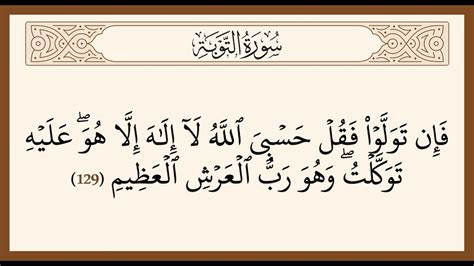 سُورَةُ التَّوْبَةِ
فَإِن تَوَلَّوْا۟ فَقُلْ حَسْبِىَ ٱللَّهُ لَآ إِلَـٰهَ إِلَّا هُوَ ۖ عَلَيْهِ
تَوَكَّلْتُ ۖ وَهُوَ رَبُّ ٱلْعَرْشِ ٱلْعَظِيمِ (129)